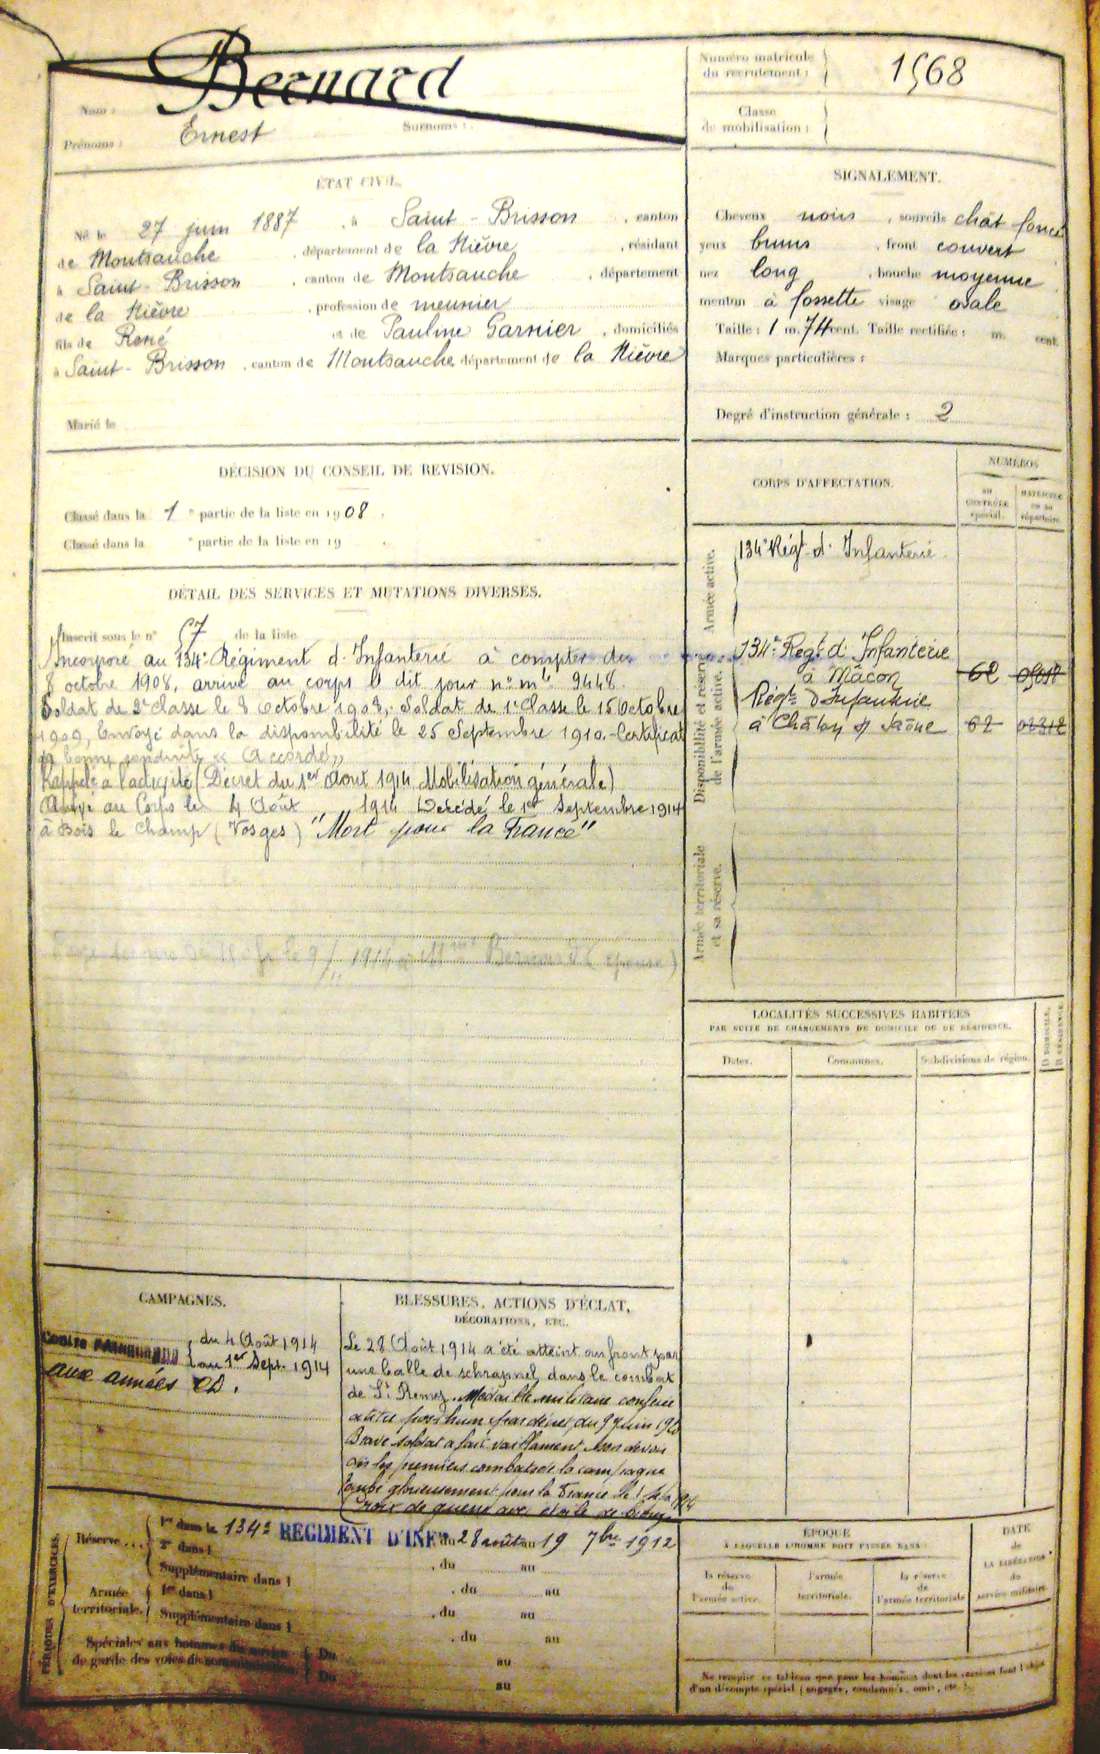 Nom : Bernard
Prénoms : Ernest Surnoms :
Numéro matricule du recrutement : 1568
Classe de mobilisation :
ÉTAT CIVIL.
Né le 27 juin 1887, à Saint-Brisson, canton
de Montsauche, département de la Nièvre, résidant
à Saint-Brisson, canton de Montsauche, département
de la Nièvre, profession de meunier
fils de René et de Pauline Garnier, domiciliés
à Saint-Brisson, canton de Montsauche, département de la Nièvre
Marié le
SIGNALEMENT.
Cheveux noirs, sourcils chât foncé
yeux bruns, front couvert
nez long, bouche moyenne
menton à fossette visage ovale
Taille : 1 m. 74 cent. Taille rectifiée : m. cent.
Marques particulières :
Degré d'instruction générale : 2
DÉCISION DU CONSEIL DE REVISION.
Classé dans la 1e partie de la liste en 1908.
Classé dans la e partie de la liste en 19 .
DÉTAIL DES SERVICES ET MUTATIONS DIVERSES.
Inscrit sous le n° 57 de la liste
Incorporé au 134e Régiment d'Infanterie à compter du
8 octobre 1908, arrivé au corps le dit jour n° mle 9448.
Soldat de 2e classe le 8 Octobre 1908, Soldat de 1e Classe le 15 Octobre
1909, Envoyé dans la disponibilité le 25 Septembre 1910. Certificat
de bonne conduite « Accordé »
Rappelé à l'activité (Décret du 1er Août 1914 Mobilisation générale)
Arrivé au Corps le 4 Août 1914 Décédé le 1er Septembre 1914
à Bois le Champ (Vosges) "Mort pour la France"
CORPS D'AFFECTATION.
NUMÉROS
AU CONTRÔLE spécial.
MATRICULE ou au répertoire.
Armée active.
134e Régt d'Infanterie
Disponibilité et réserve de l'armée active.
134e Régt d'Infanterie
à Mâcon 62
Régt d'Infanterie
à Châlon s/ Saône 62
Armée territoriale et sa réserve.
LOCALITÉS SUCCESSIVES HABITÉES
PAR SUITE DE CHANGEMENTS DE DOMICILE OU DE RÉSIDENCE.
Dates. Communes. Subdivisions de région. D DOMICILE, R RÉSIDENCE.
CAMPAGNES.
Contre l'Allemagne
du 4 Août 1914
au 1er Sept. 1914
aux armées
BLESSURES, ACTIONS D'ÉCLAT,
DÉCORATIONS, ETC.
Le 28 Août 1914 a été atteint au front par
une balle de schrapnel dans le combat
de St Remy. Médaille militaire conférée
à titre posthume par décret du 9 Juin
Brave soldat a fait vaillament son devoir
dès les premiers combats de la campagne
Tombé glorieusement pour la France le 1
Croix de guerre avec étoile de bronze
PÉRIODES D'EXERCICES.
Réserve...
1re dans le 134e REGIMENT D'INF du 28 août au 19 7bre 1912
2e dans l , du au
Supplémentaire dans l
Armée territoriale.
1re dans l , du au
Supplémentaire dans l , du au
Spéciales aux hommes du service de garde des voies de communication.
Du au
Du au
ÉPOQUE
À LAQUELLE L'HOMME DOIT PASSER DANS :
la réserve de l'armée active.
l'armée territoriale.
la réserve de l'armée territoriale
DATE de LA LIBÉRATION du service militaire.
Ne remplir ce tableau que pour les hommes dont les services font l'objet
d'un décompte spécial (engagés, condamnés, omis, etc.).